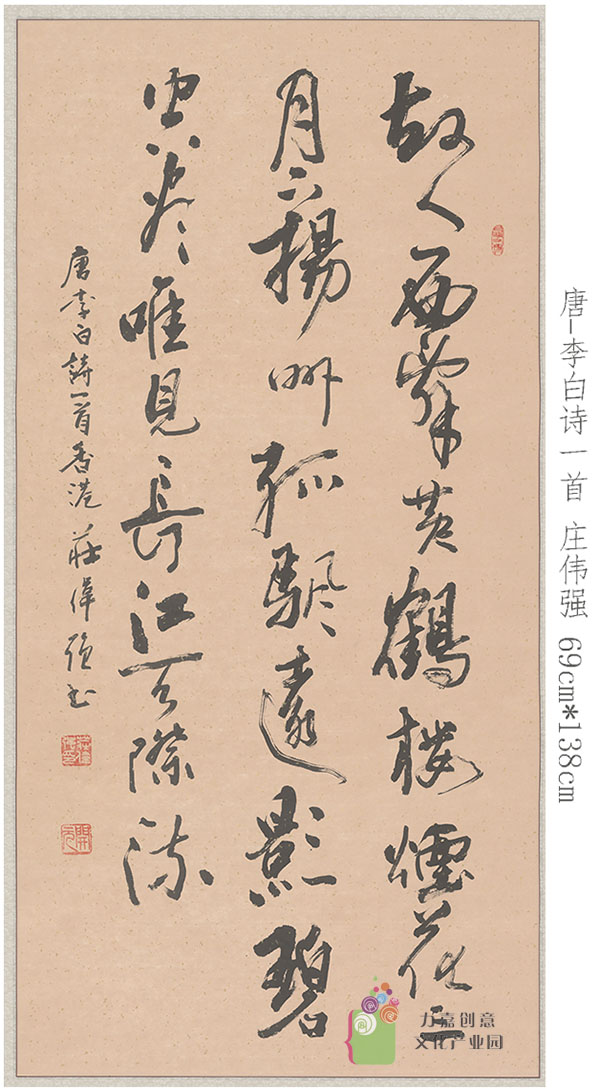 故人西辭黄鶴樓煙花三
月下揚州孤颿遠影碧
空盡唯見長江天際流
唐李白詩一首香港莊偉強書
唐-李白诗一首 庄伟强 69cm*138cm
力嘉创意
文化产业园